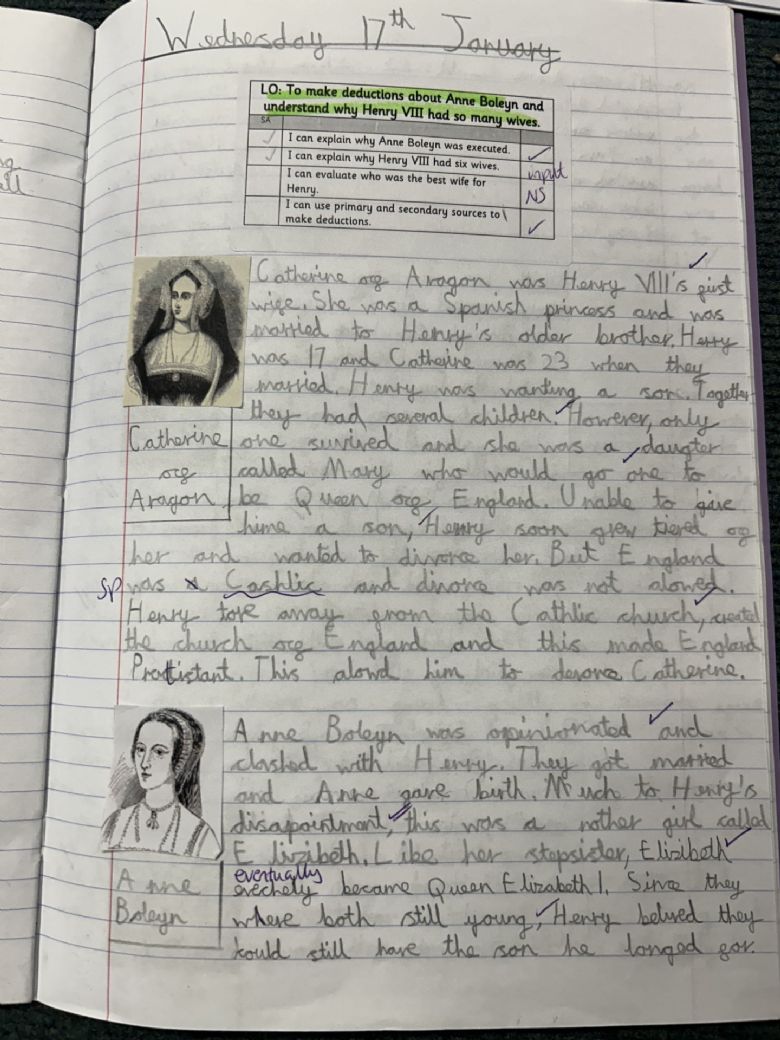 Wednesday 17th January
LO: To make deductions about Anne Boleyn and
understand why Henry VIII had so many wives.
SA
I can explain why Anne Boleyn was executed.
I can explain why Henry VIII had six wives.
I can evaluate who was the best wife for
Henry.
input
NS
I can use primary and secondary sources to
make deductions.
Catherine
of
Aragon
Catherine of Aragon was Henry VIII's first
wife. She was a Spanish princess and was
married to Henry's older brother. Henry
was 17 and Catherine was 23 when they
married. Henry was wanting a son. Together
they had several children. However, only
one survived and she was a daugter
called Mary who would go one to
be Queen of England. Unable to give
hime a son, Henry soon grew tiered of
her and wanted to divorce her. But England
sp was a Cathlic and divorce was not alowed.
Henry tore away from the Cathlic church, created
the church of England and this made England
Protistant. This alowd him to devorce Catherine.
Anne
Boleyn
Anne Boleyn was opinionated and
clashed with Henry. They got married
and Anne gave birth. Much to Henry's
disapointment, this was a nother girl called
Elizibeth. Like her stepsister, Elizibeth
eventually
evechely became Queen Elizabeth I. Since they
where both still young, Henry belived they
could still have the son he longed for.